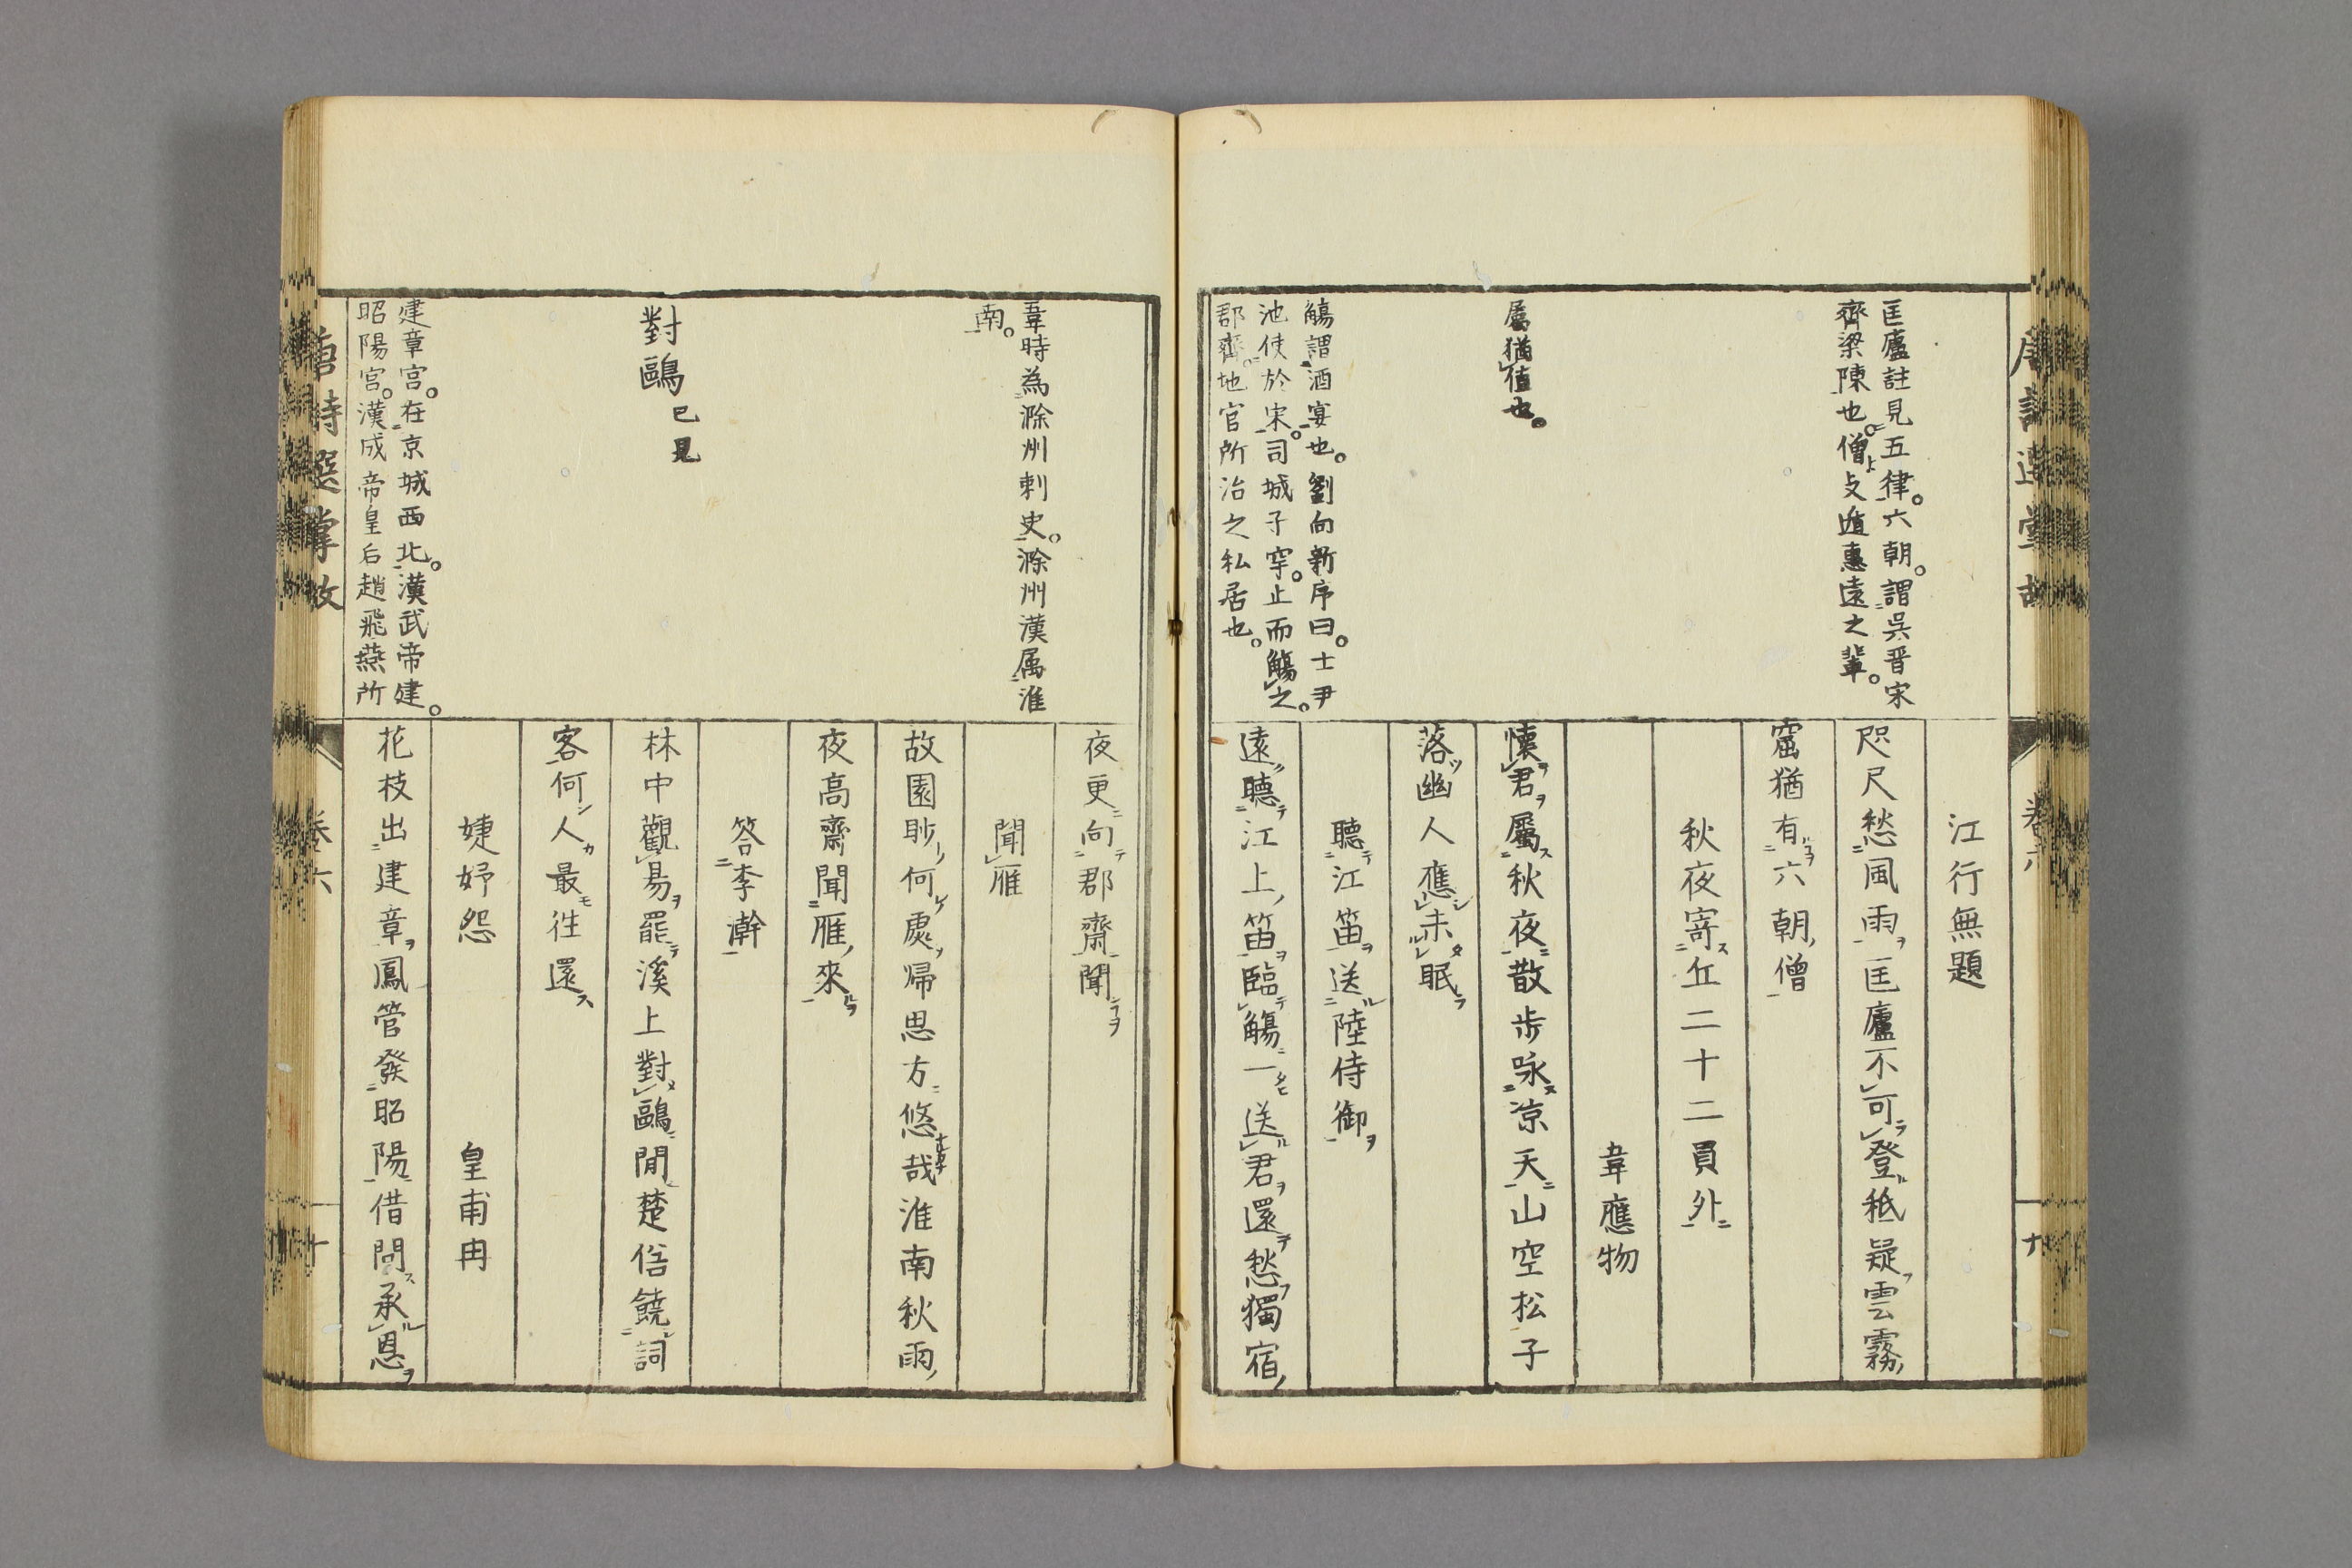 唐詩選掌故
卷六
九
匡廬註見五律。六朝。謂吳晋宋
齊梁陳也。僧支遁惠遠之輩。
屬猶值也。
觴謂酒宴也。劉向新序曰。士尹
池使於宋。司城子罕。止而觴之。
郡齊。地官所治之私居也。
江行無題
咫尺愁風雨匡廬不可登秪疑雲霧
窟猶有六朝僧
秋夜寄丘二十二員外
韋應物
懷君屬秋夜散步咏凉天山空松子
落幽人應未眠
聽江笛送陸侍御
遠聽江上笛臨觴一送君還愁獨宿
韋時為滁州刺史。滁州漢属淮
南。
對鷗已見
建章宮。在京城西北。漢武帝建。
昭陽宮。漢成帝皇后趙飛燕所
夜更向郡齋聞
聞雁
故園眇何處歸思方悠哉淮南秋雨
夜高齋聞雁來
答李澣
林中觀易罷溪上對鷗閒楚俗饒詞
客何人最往還
婕妤怨
皇甫冉
花枝出建章鳳管發昭陽借問承恩
唐詩選掌故
卷六
十